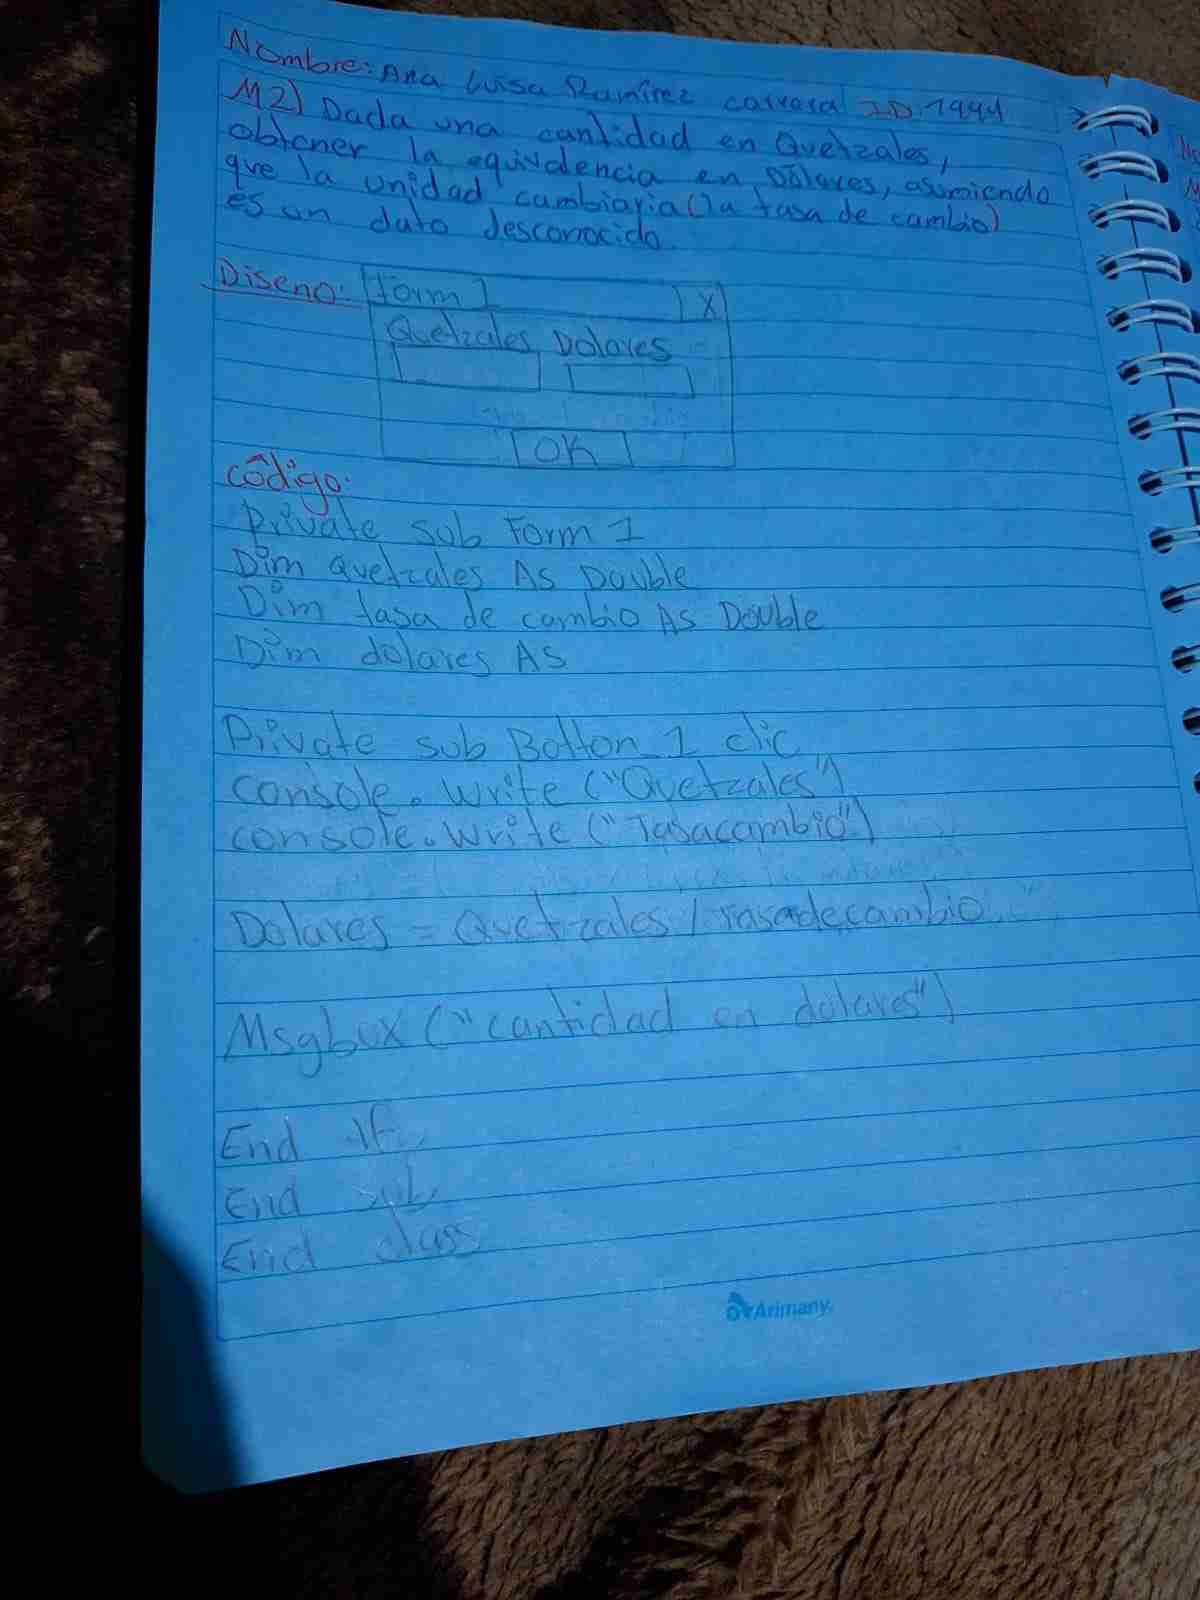 Nombre: Ana Luisa Ramírez Carrera ID. 1994
M2) Dada una cantidad en Quetzales,
obtener la equivalencia en Dólares, asumiendo
que la unidad cambiaria (la tasa de cambio)
es un dato desconocido.
Diseno: Form 1 X
Quetzales Dolares
OK
Código:
Private sub Form 1
Dim Quetzales As Double
Dim tasa de cambio As Double
Dim dolares As
Private sub Botton_1 clic
console.write ("Quetzales")
console.write ("Tasacambio")
Dolares = Quetzales / Tasadecambio
Msgbox ("cantidad en dolares")
End If
End sub
End class
Arimany